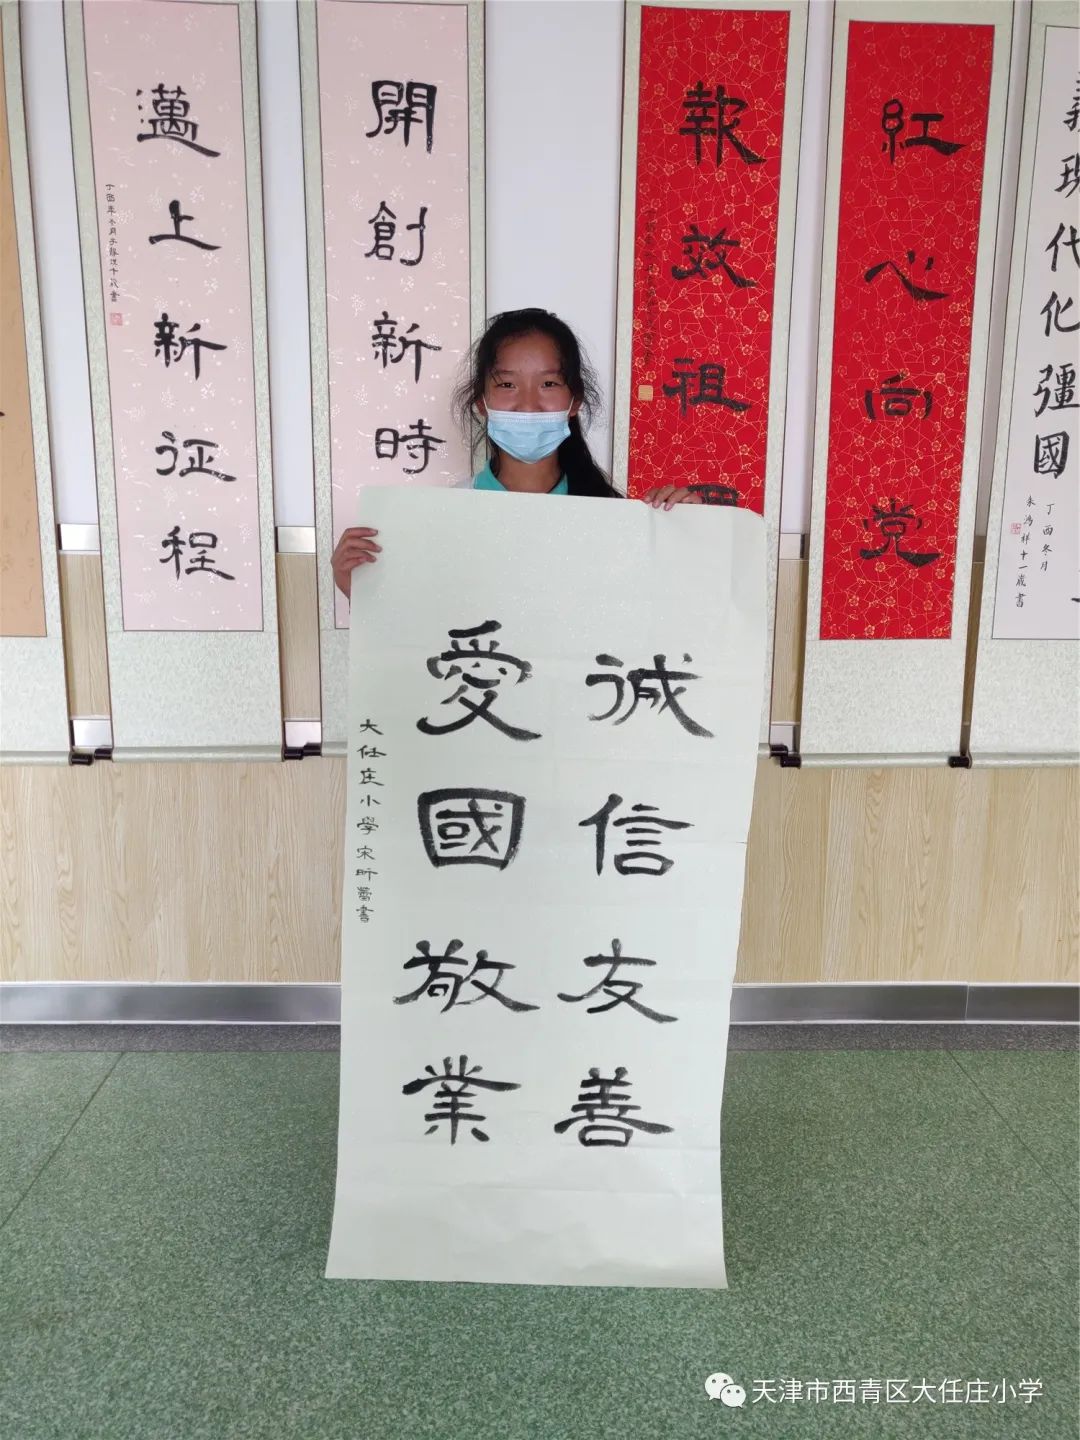 誠信友善
愛國敬業
大任庄小学宋昕蕾書
紅心向党
報效祖
開創新時
邁上新征程
丁酉年冬月
現代化強國
丁酉冬月
朱鴻祥十一歲書
天津市西青区大任庄小学